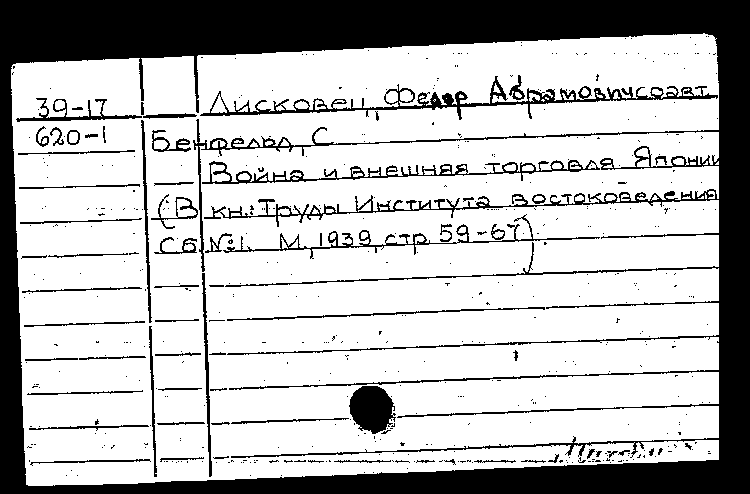 39-17 Лисковец, Федор Абрамович соавт
620-1 Бенфельд, С
Война и внешняя торговля Японии
(В кн.: Труды Института востоковедения
Сб. №1. М, 1939, стр 59-67).